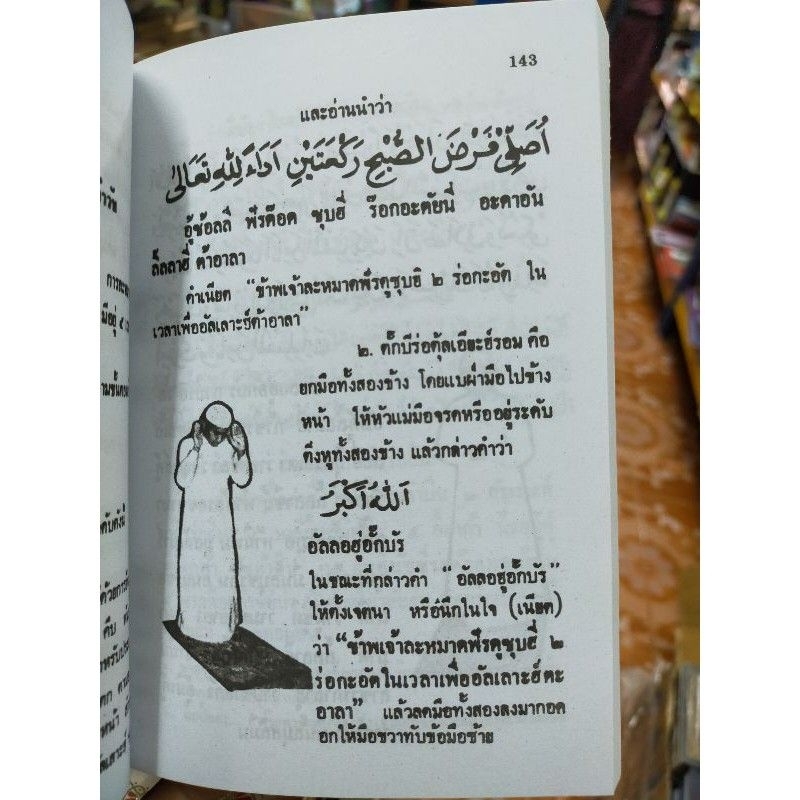 143
และอ่านนำว่า
اُصَلِّى فَرْضَ الصُّبْحِ رَكْعَتَيْنِ اَدَاءً لِلّٰهِ تَعَالٰى
อู้ซ้อลลี ฟัรด๊อด ซุบฮี่ ร๊อกอะตัยนี่ อะดาอัน
ลิ้ลลาฮี่ ต้าอาลา
คำเนียต "ข้าพเจ้าละหมาดฟัรดูซุบฮิ ๒ ร่อกะอัต ใน
เวลาเพื่ออัลเลาะฮ์ต้าอาลา"
๒. ตั๊กบีร่อตุ้ลเอียะฮ์รอม คือ
ยกมือทั้งสองข้าง โดยแบฝ่ามือไปข้าง
หน้า ให้หัวแม่มือจรดหรืออยู่ระดับ
ติ่งหูทั้งสองข้าง แล้วกล่าวคำว่า
اَللّٰهُ اَكْبَرُ
อัลลอฮู่อั๊กบัร
ในขณะที่กล่าวคำ "อัลลอฮู่อั๊กบัร"
ให้ตั้งเจตนา หรือนึกในใจ (เนียต)
ว่า "ข้าพเจ้าละหมาดฟัรดูซุบฮี่ ๒
ร่อกะอัตในเวลาเพื่ออัลเลาะฮ์ตะ
อาลา" แล้วลดมือทั้งสองลงมากอด
อกให้มือขวาทับข้อมือซ้าย